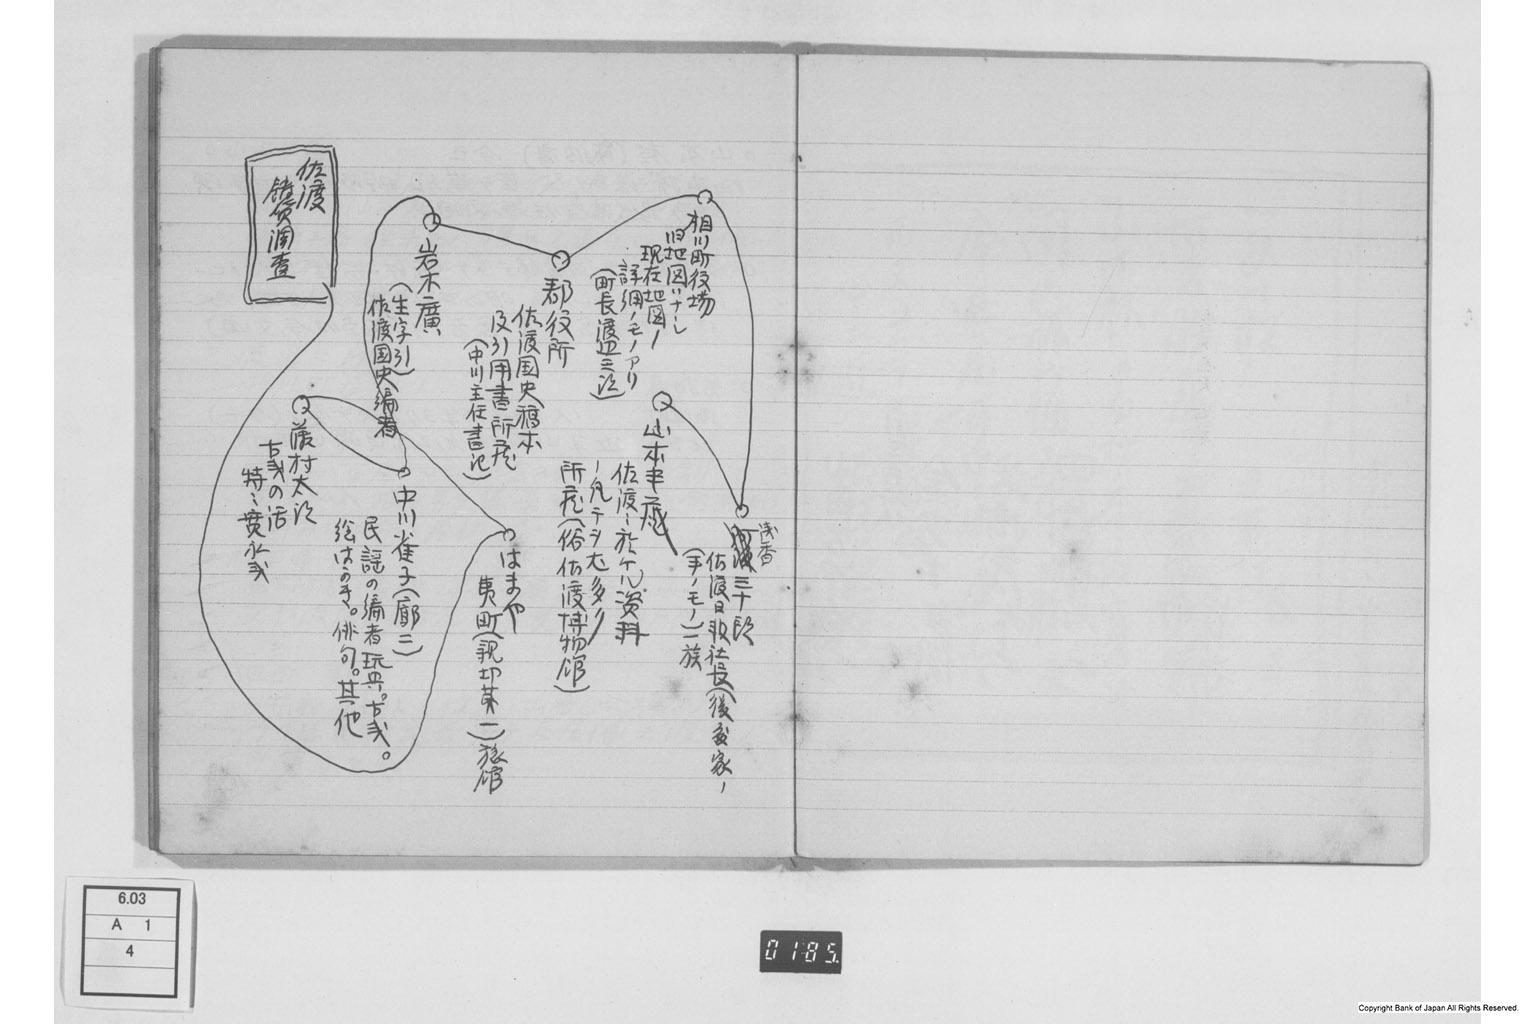 浅香
三十郎
佐渡日報社長(後藤家ノ
手ノモノ)一族
相川町役場
旧地図ハナシ
現在地図ノ
詳細ノモノアリ
(町長渡辺三次)
山本半蔵
佐渡ニ於ケル資料
ノ凡テヲ尤多ク
所蔵(俗佐渡博物館)
郡役所
佐渡国史稿本
及引用書所蔵
(中川主任書記)
はまや
夷町(親切第一)旅館
岩木廣
(生字引)
佐渡国史編者
中川雀子(廓二)
民謡の編者玩具。古銭。
絵はがき。俳句。其他
佐渡
銭貨調査
藤村太次
古銭の話
特ニ寛永銭
6.03
A 1
4
0185
Copyright Bank of Japan All Rights Reserved.